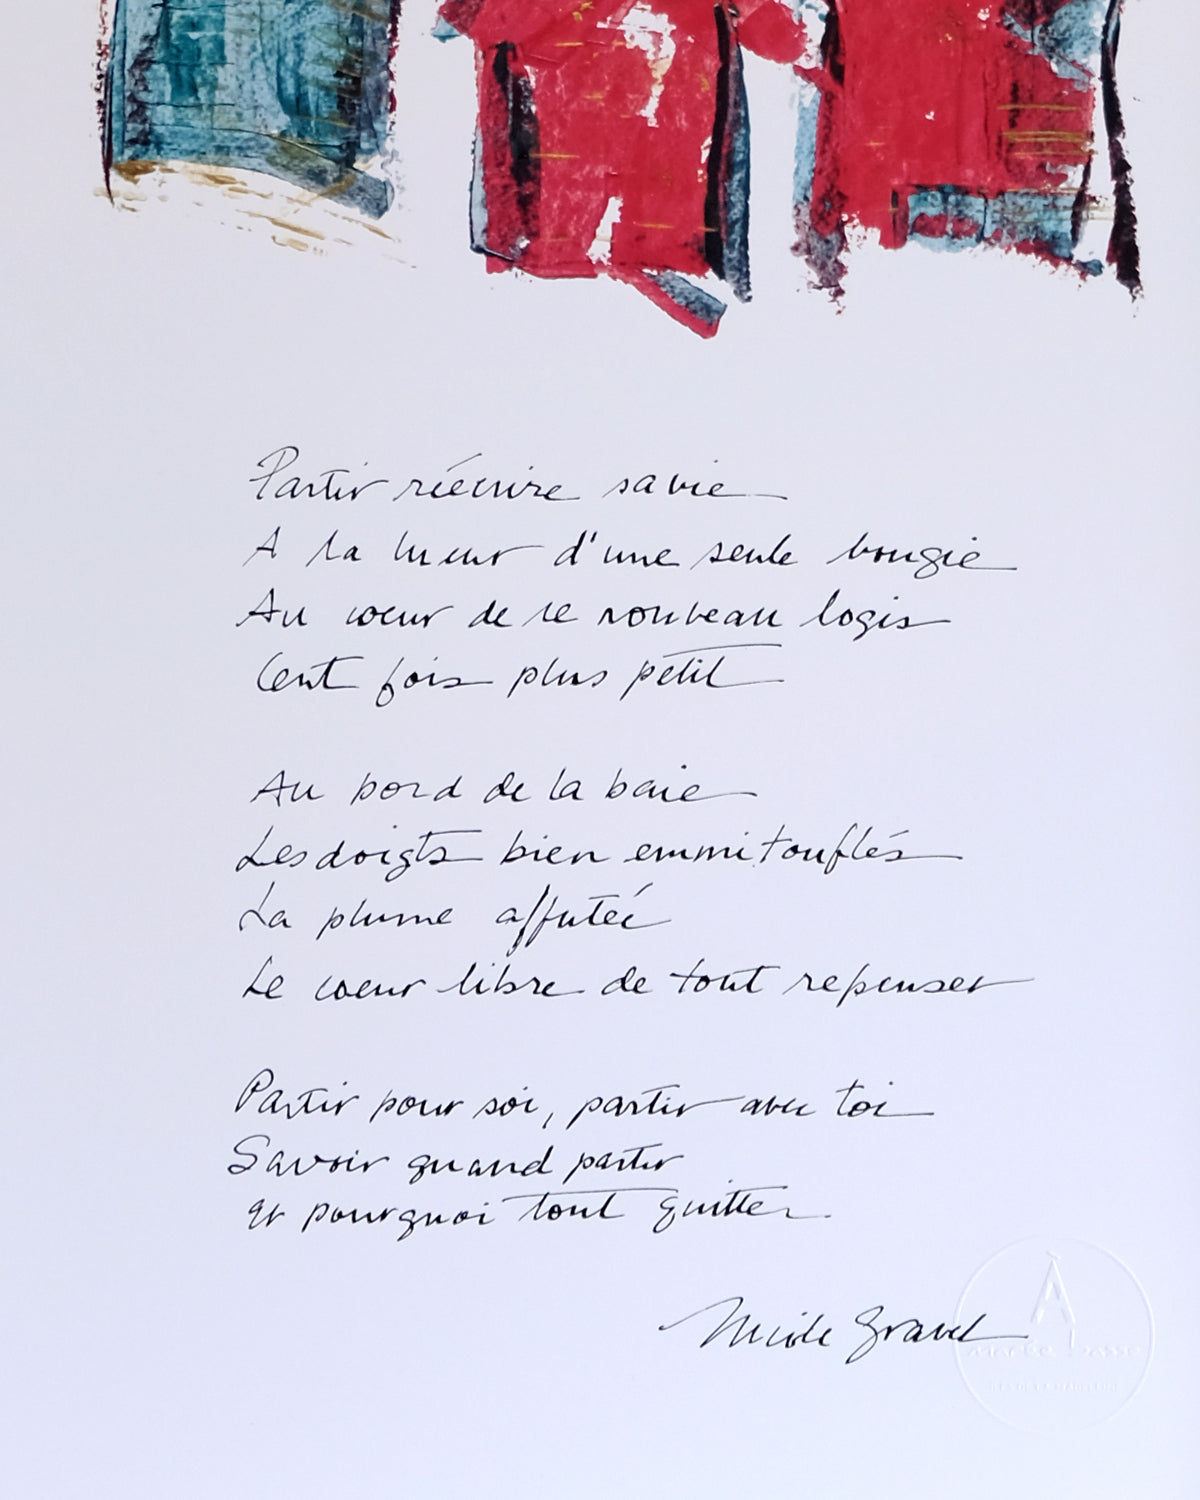 Partir réécrire sa vie
A la lueur d'une seule bougie
Au coeur de ce nouveau logis
Cent fois plus petit
Au bord de la baie
Les doigts bien emmitouflés
La plume affutée
Le coeur libre de tout repenser
Partir pour soi, partir avec toi
Savoir quand partir
et pourquoi tout quitter
Nicole Gravel
À
MARÉE BASSE